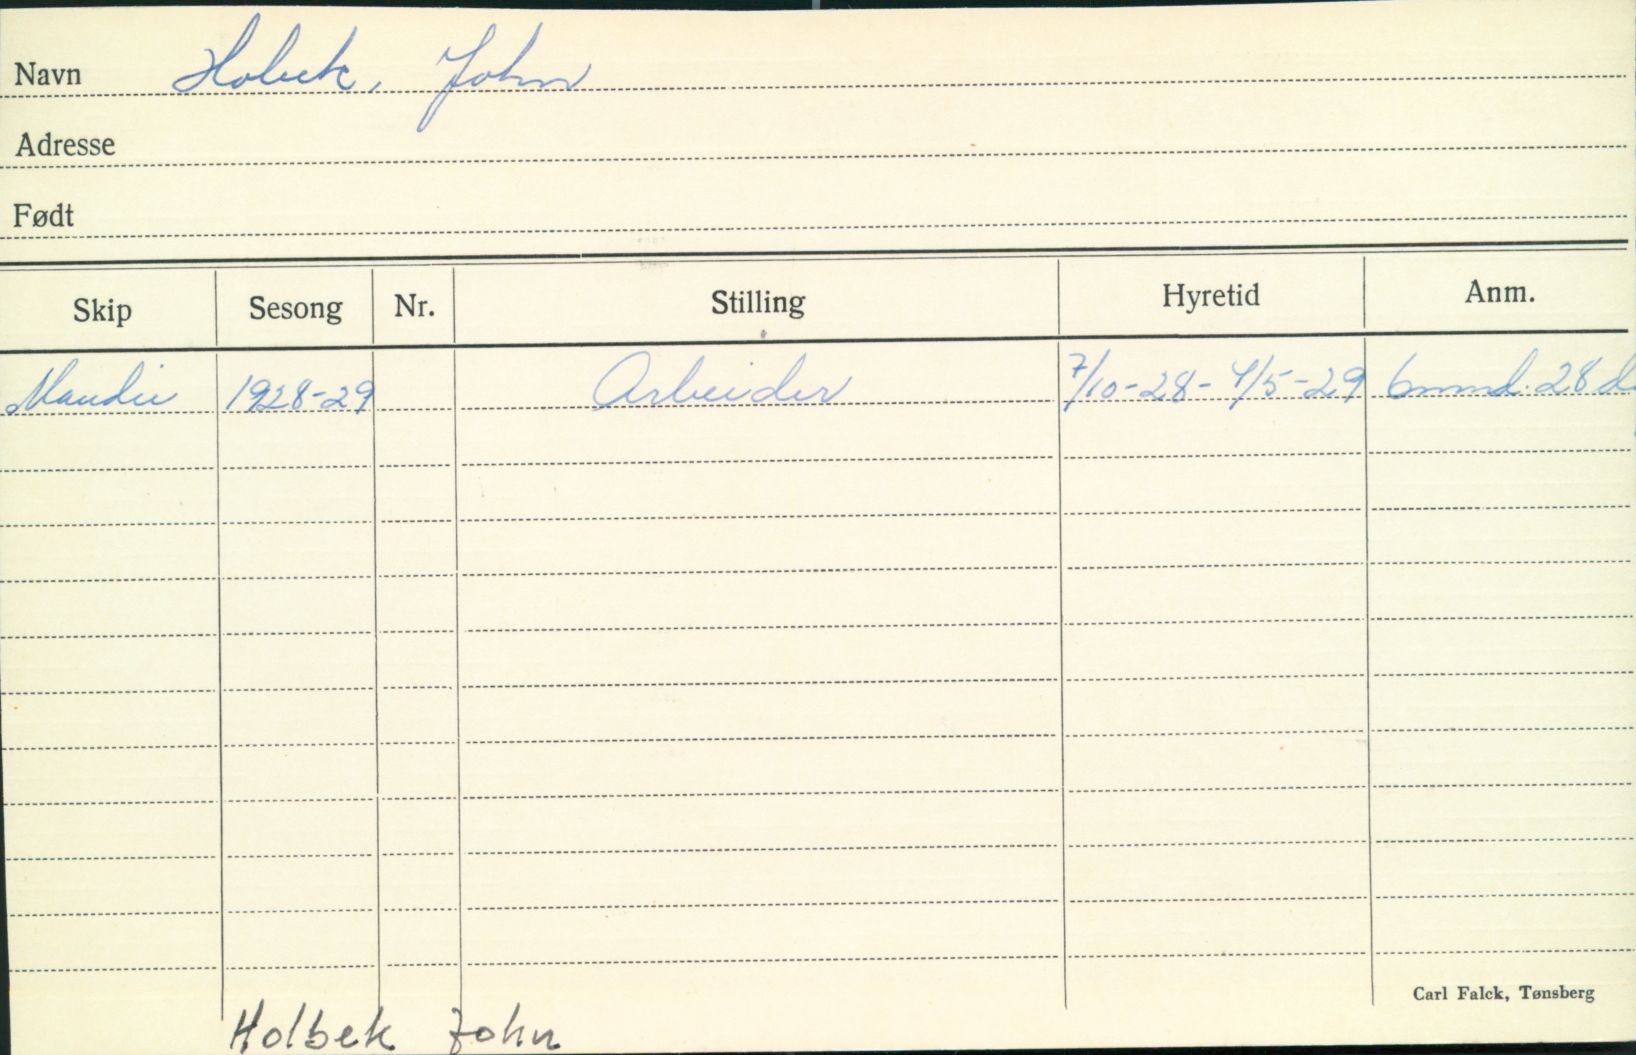 Navn Holbek, John
Adresse
Født
Skip Sesong Nr. Stilling Hyretid Anm.
Maudie 1928-29 Arbeider 7/10-28 - 4/5-29 6 mnd. 28 d.
Carl Falck, Tønsberg
Holbek John